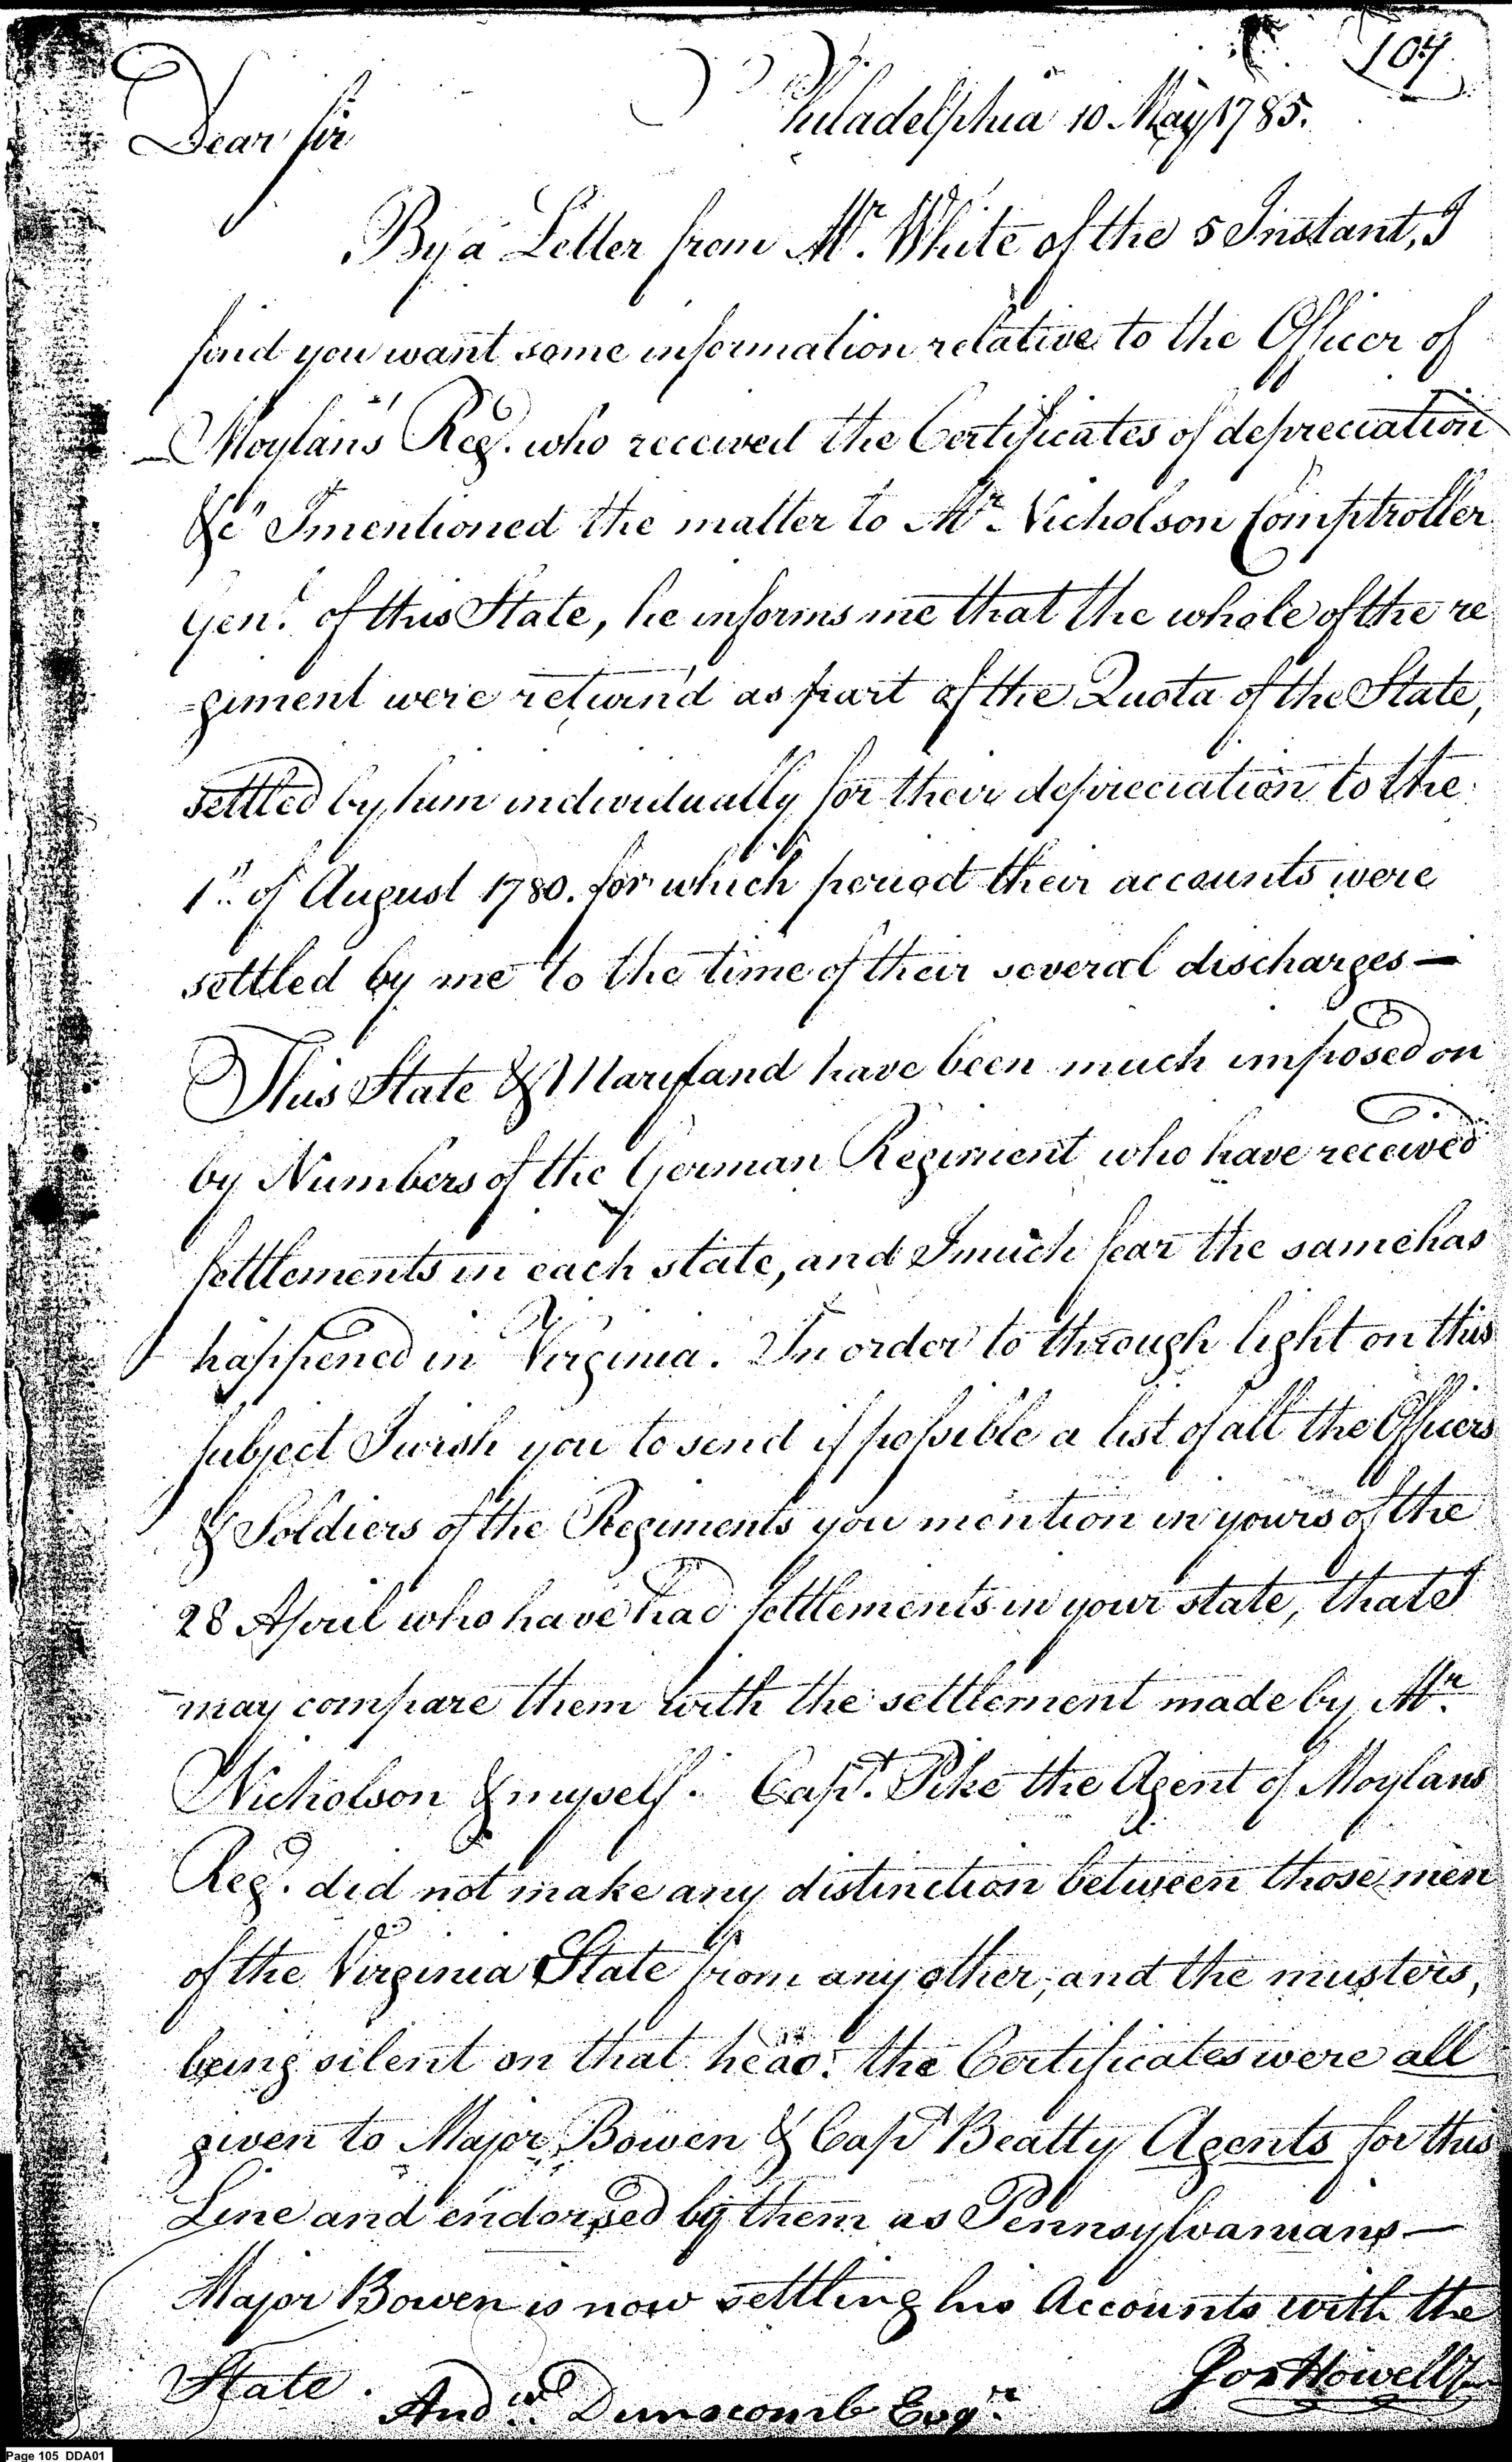 104
Philadelphia 10 May 1785.
Dear Sir
By a Letter from Mr. White of the 5 Instant, I
find you want some information relative to the Officer of
Moylan's Reg. who received the Certificates of depreciation
&c" I mentioned the matter to Mr. Nicholson Comptroller
Genl. of this State, he informs me that the whole of the re
-giment were return'd as part of the Quota of the State,
settled by him individually for their depreciation to the
1st. of August 1780. for which period their accounts were
settled by me to the time of their several discharges —
This State & Maryland have been much imposed on
by Numbers of the German Regiment who have received
settlements in each state, and I much fear the same has
happened in Virginia. In order to through light on this
subject I wish you to send if possible a list of all the Officers
& Soldiers of the Regiments you mention in yours of the
28 April who have had settlements in your state, that I
may compare them with the settlement made by Mr.
Nicholson & myself. Capt. Pike the Agent of Moylans
Reg. did not make any distinction between those men
of the Virginia State from any other, and the musters,
being silent on that head. the Certificates were all
given to Major Bowen & Capt Beatty Agents for this
Line and endorsed by them as Pennsylvanians —
Major Bowen is now settling his Accounts with the
State.
Jos Howell Jr
Andw. Dunscomb Esqre
Page 105 DDA01